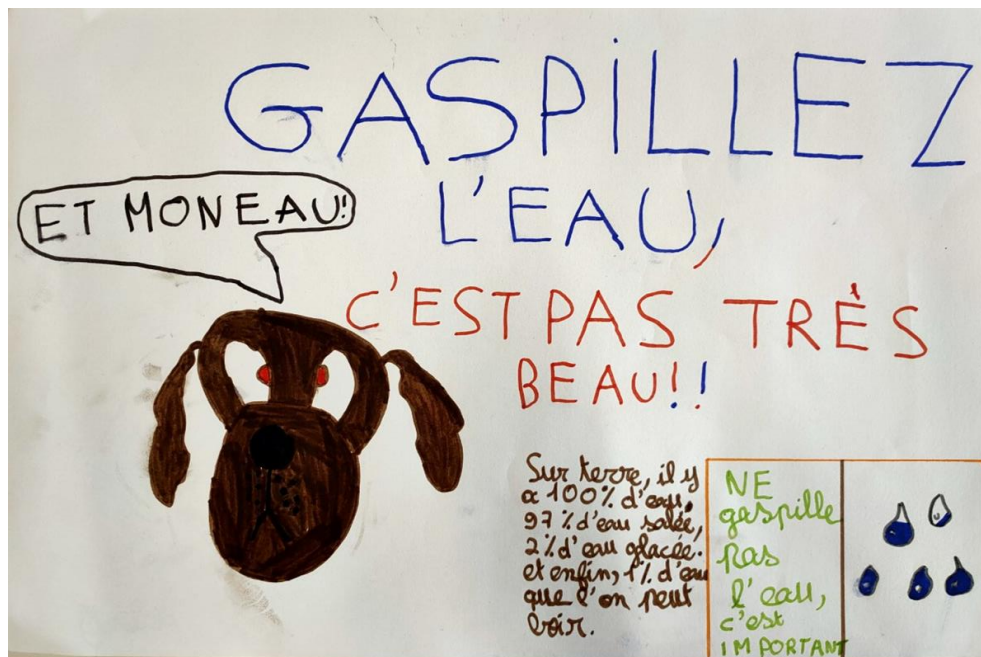 GASPILLEZ
L'EAU,
ET MON EAU!
C'EST PAS TRÈS
BEAU!!
Sur terre, il y
a 100% d'eau,
97% d'eau salée,
2% d'eau glacée.
et enfin, 1% d'eau
que l'on peut
boir.
NE
gaspille
pas
l'eau,
c'est
IMPORTANT